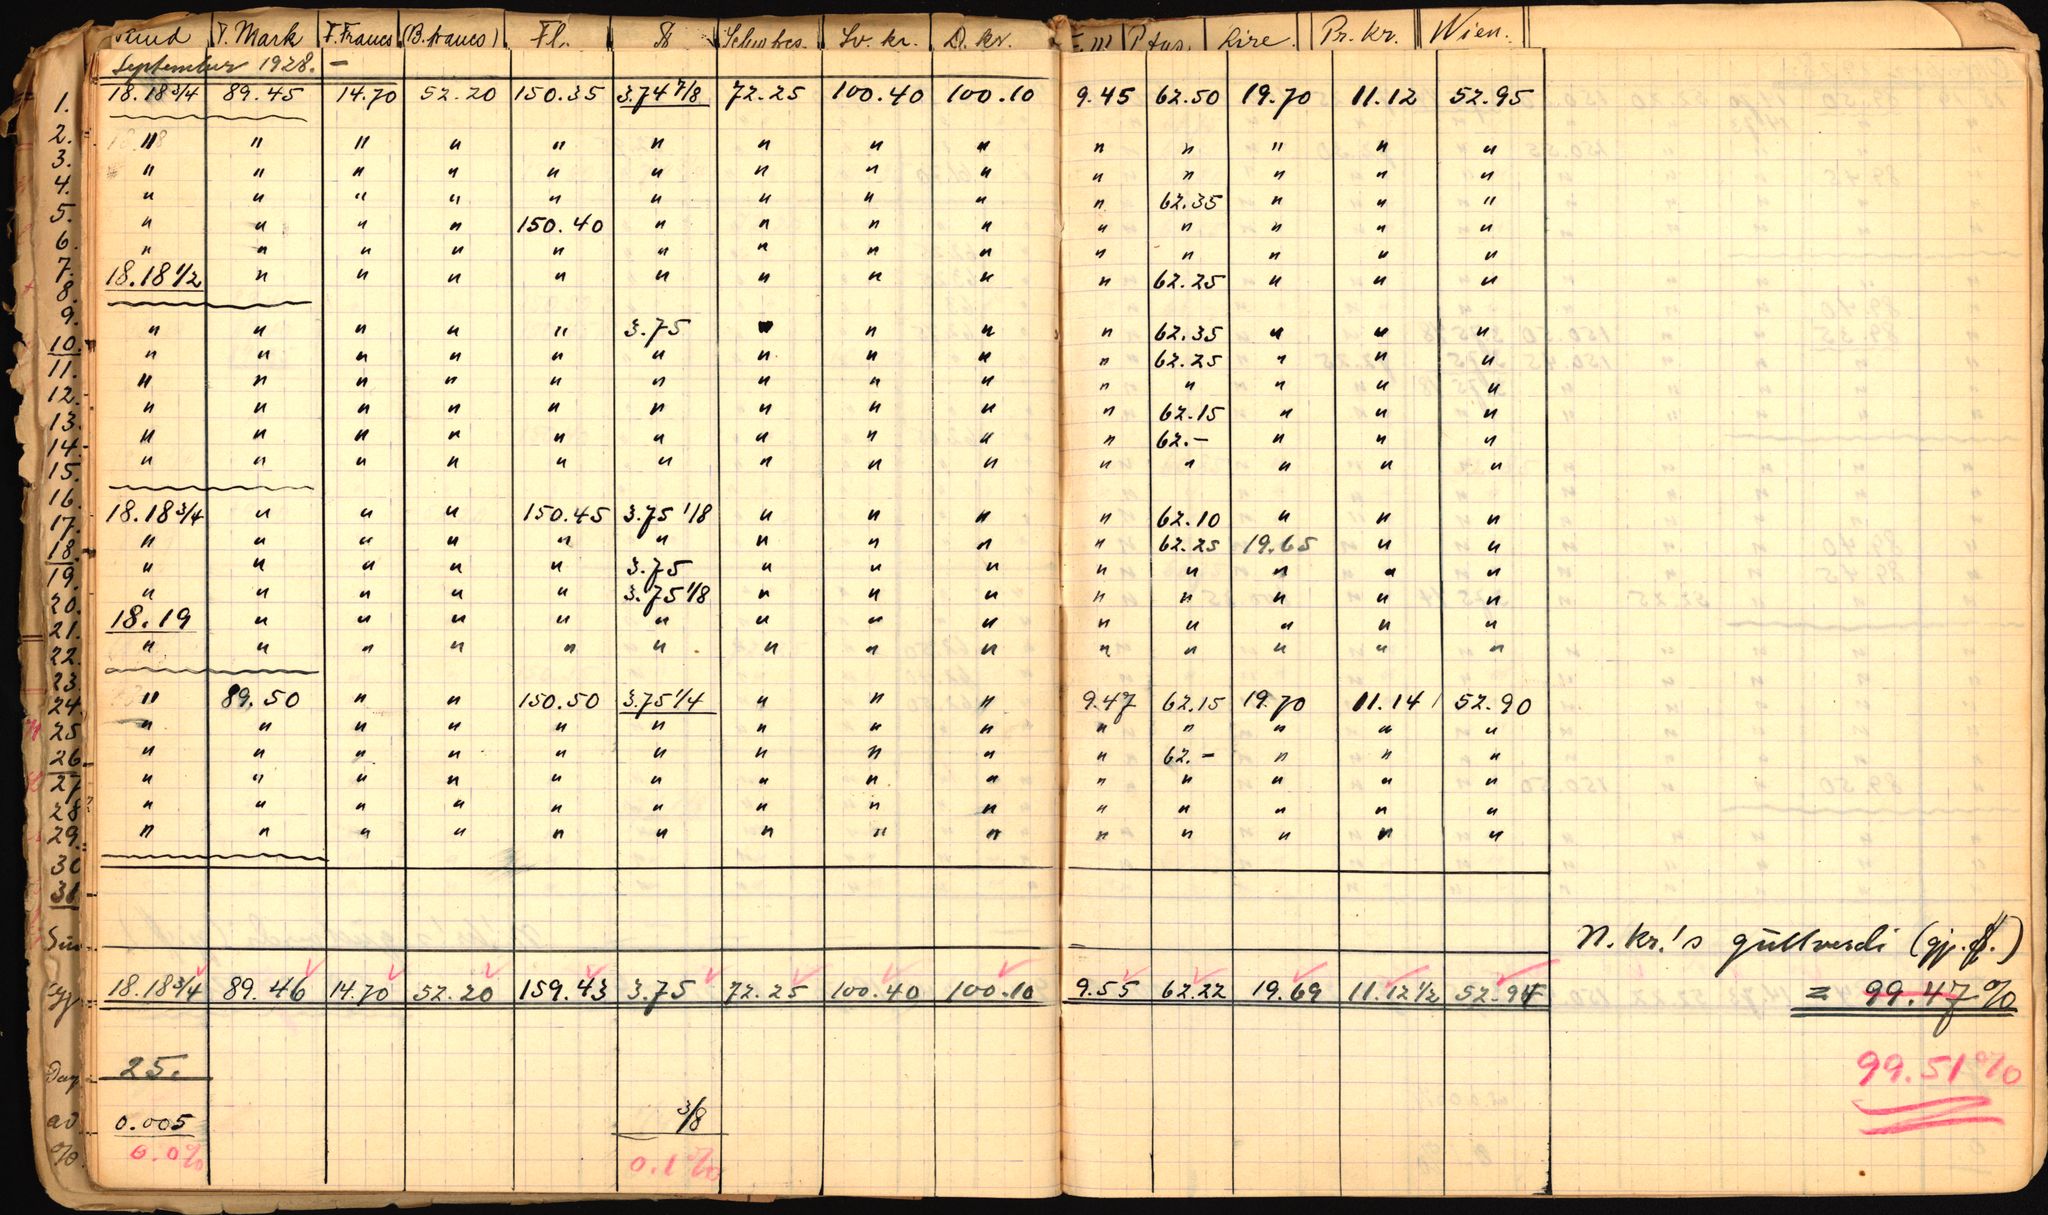 Pund T. Mark F. Francs (B. francs) Fl. $ Schw frcs. Sv. kr. D. kr. F. m Ptas. Lire. Pr. Kr. Wien.
September 1928. –
1. 18.18 3/4 89.45 14.70 52.20 150.35 3.74 7/8 72.25 100.40 100.10 9.45 62.50 19.70 11.12 52.95
2.
3. " " " " " " " " " " " " " "
4. " " " " " " " " " " " " " "
5. " " " " " " " " " " 62.35 " " "
6. " " " " 150.40 " " " " " " " " "
7. " " " " " " " " " " " " " "
8. 18.18 1/2 " " " " " " " " " 62.25 " " "
9.
10. " " " " " 3.75 " " " " 62.35 " " "
11. " " " " " " " " " " 62.25 " " "
12. " " " " " " " " " " " " " "
13. " " " " " " " " " " 62.15 " " "
14. " " " " " " " " " " 62.– " " "
15. " " " " " " " " " " " " " "
16.
17. 18.18 3/4 " " " 150.45 3.75 1/8 " " " " 62.10 " " "
18. " " " " " " " " " " 62.25 19.65 " "
19. " " " " " 3.75 " " " " " " " "
20. " " " " " 3.75 1/8 " " " " " " " "
21. 18.19 " " " " " " " " " " " " "
22. " " " " " " " " " " " " " "
23.
24. " 89.50 " " 150.50 3.75 1/4 " " " 9.47 62.15 19.70 11.14 52.90
25 " " " " " " " " " " " " " "
26. " " " " " " " " " " 62.– " " "
27 " " " " " " " " " " " " " "
28 " " " " " " " " " " " " " "
29. " " " " " " " " " " " " " "
30
31.
N. kr.'s gullverdi (gj. $.)
18.18 3/4 89.46 14.70 52.20 159.43 3.75 72.25 100.40 100.10 9.55 62.22 19.69 11.12 1/2 52.94 = 99.47 %
99.51 %
Dag 25.
3/8
0.005
% 0.0% 0.1 %